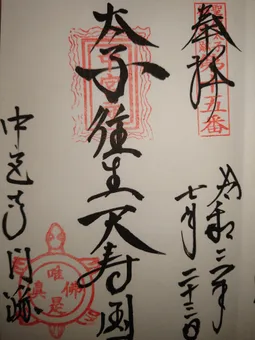 奉拝
第十五番
令和二年
七月二十三日
太子往生天寿国
中宮寺門跡
唯佛
是真